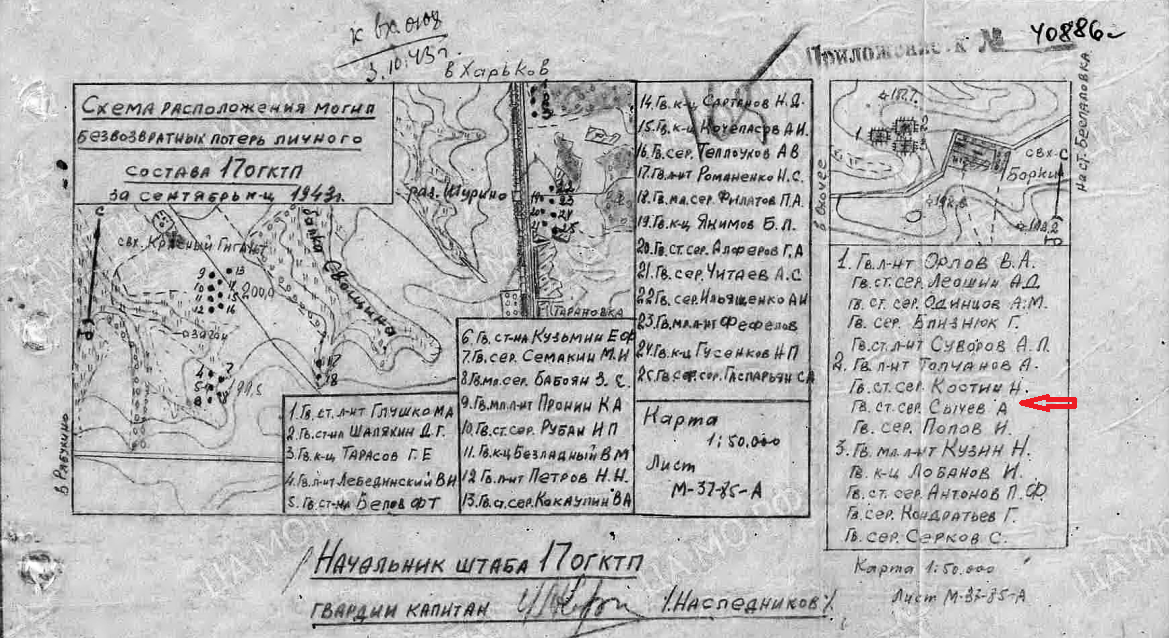 к вх. 0108
3.10.43г.
Приложение к № 40886
в Харьков
Схема расположения могил
безвозвратных потерь личного
состава 17 ОГКТП
за сентябрь м-ц 1943г.
С
свх. Красный Гигант
балка Свощина
раз. Шурино
Тарановка
9 13
10
11 15
12 16
200,0
загон
4
5
8
194,5
17
18
Ю
в Рябухино
22
19 23
20 24
21 25
1. Гв. ст. л-нт Глушко МА
2. Гв. ст-на Шалякин Д.Г.
3. Гв. к-ц Тарасов Г.Е
4. Гв. л-нт Лебединский ВИ
5. Гв. ст-на Белов ФТ
6. Гв. ст-на Кузьмин Е Ф
7. Гв. сер. Семакин М.И
8. Гв. мл. сер. Бабоян З. С.
9. Гв. мл. л-нт Пронин КА
10. Гв. ст. сер. Рубан И П
11. Гв. к-ц Безладный В М
12 Гв. л-нт Петров Н.Н.
13. Гв. ст. сер. Кокаулин ВА
14. Гв. к-ц Сартанов Н.Д.
15. Гв. к-ц Кочепасов А.И.
16. Гв. сер. Теплоухов А В
17. Гв. л-нт Романенко Н.С.
18. Гв. мл. сер. Филатов П.А.
19. Гв. к-ц Якимов Б.П.
20. Гв. ст. сер. Алферов Г.А
21. Гв. сер. Читаев А.С
22 Гв. сер. Ильященко АИ
23. Гв. мл. л-нт Фефелов
24. Гв. к-ц Гусенков НП
25. Гв. ст. сер. Гаспарьян СА
Карта
1:50.000
Лист
М-37-85-А
в Охочее
на ст. Беспаловка
187.7
1 2
3
свх.
Борки
С
Ю
1. Гв. л-нт Орлов В.А.
Гв. ст. сер. Леошин А.Д
Гв. ст. сер. Одинцов А.М.
Гв. сер. Близнюк Г.
Гв. ст. л-нт Суворов А.П.
2. Гв. л-нт Толчанов А.
Гв. ст. сер. Костин Н.
Гв. ст. сер. Сычев А
Гв. сер. Попов И.
3. Гв. мл. л-нт Кузин Н.
Гв. к-ц Лобанов И.
Гв. ст. сер. Антонов П.Ф.
Гв. сер. Кондратьев Г.
Гв. сер. Серков С.
Карта 1:50.000
Лист М-37-85-А
Начальник штаба 17 ОГКТП
гвардии капитан /. Наследников /.
ЦАМО.РФ